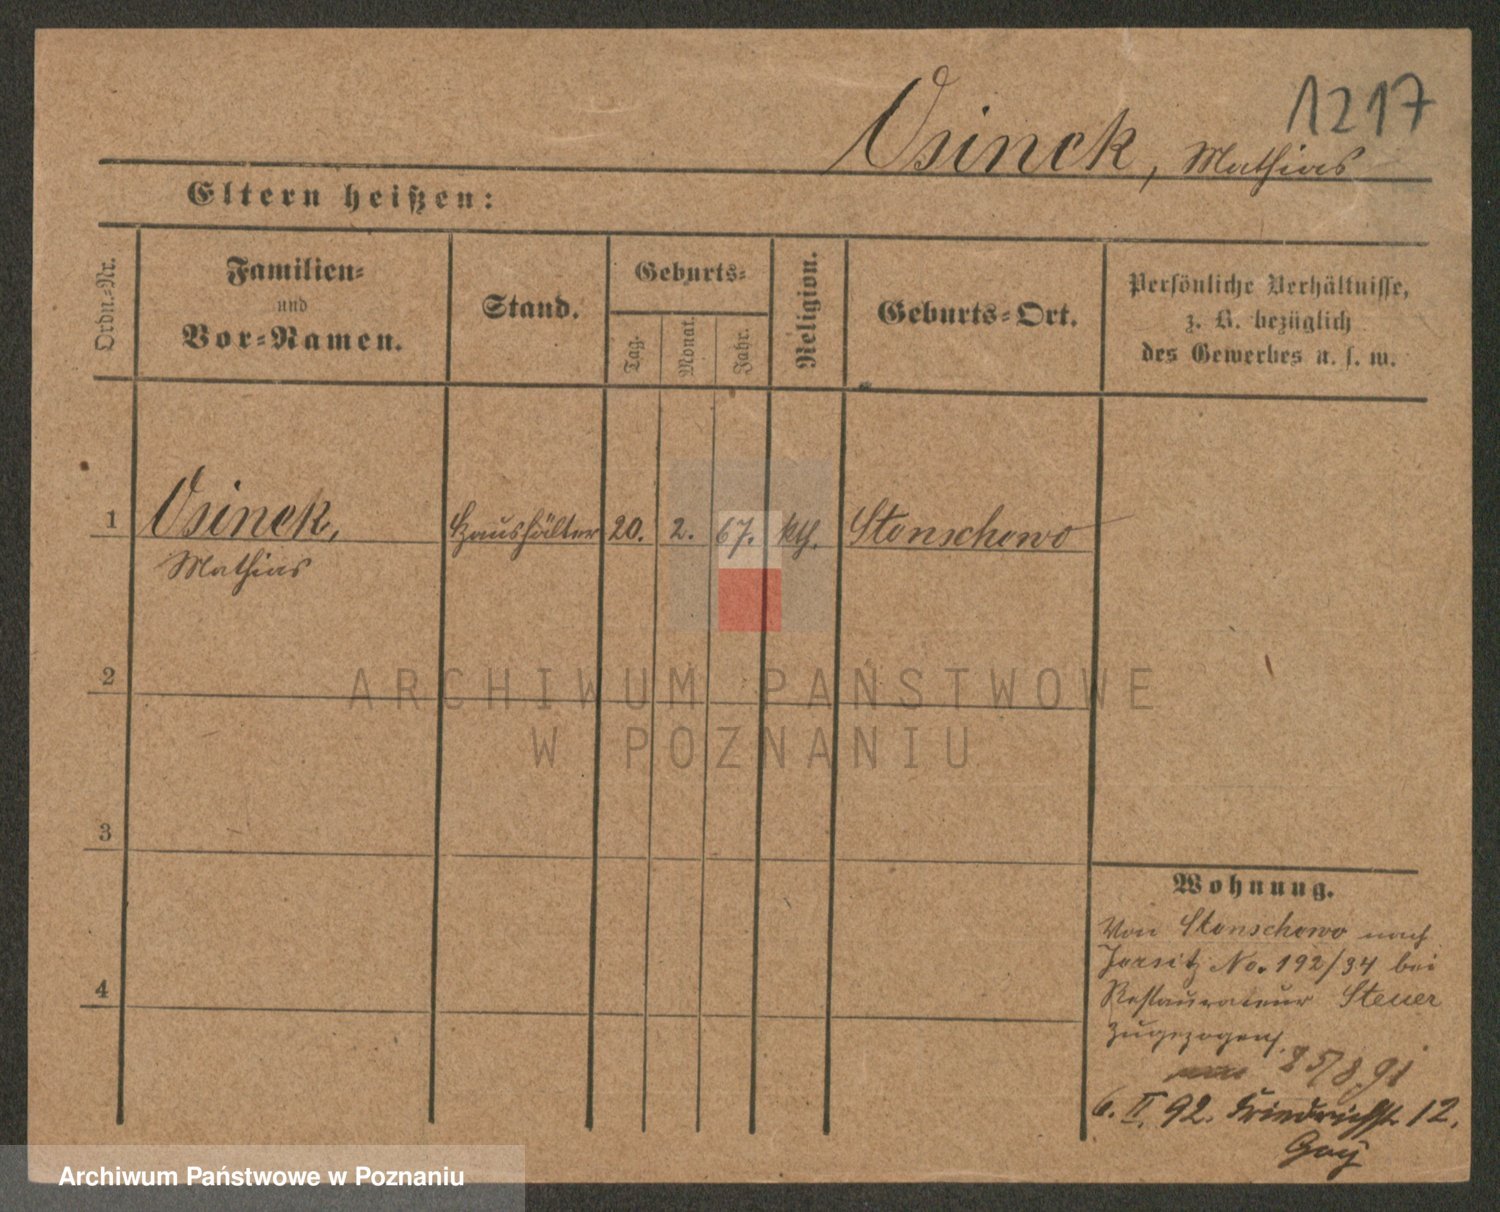 1217
Osinek, Mathias
Eltern heißen:
Ordn.-Nr.
Familien-
und
Vor-Namen.
Stand.
Geburts-
Tag.
Monat.
Jahr.
Religion.
Geburts-Ort.
Persönliche Verhältnisse,
z. B. bezüglich
des Gewerbes u. s. w.
1 Osinek, Haushälter 20. 2. 67. kth. Stenschewo
Mathias
2
3
4
Wohnung.
Von Stenschewo nach
Jersitz No. 192/34 bei
Restaurateur Steuer
zugezogen.
25/8 91
6. II. 92. Friedrichstr 12.
ARCHIWUM PAŃSTWOWE
W POZNANIU
Archiwum Państwowe w Poznaniu